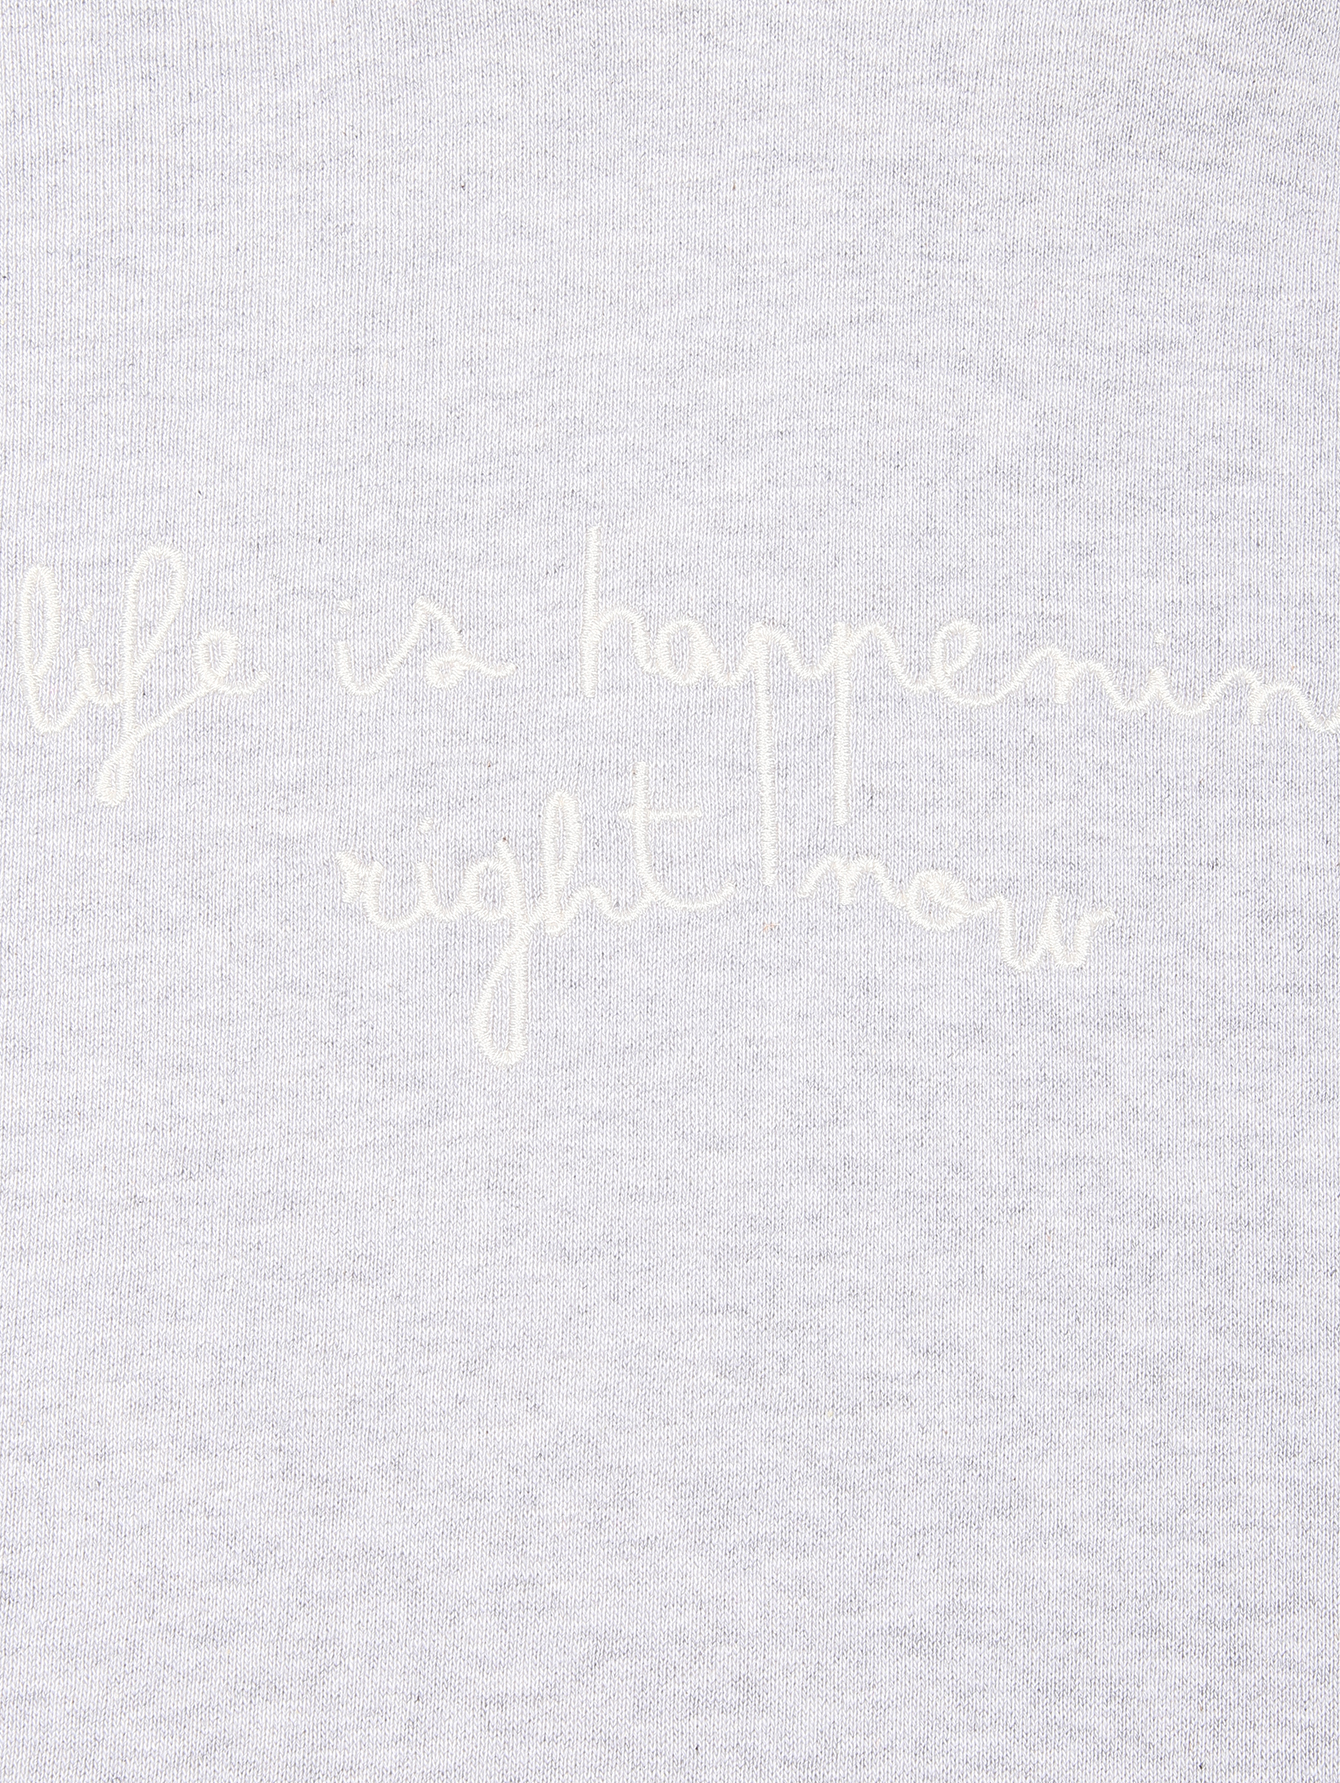 life is happenin
right now